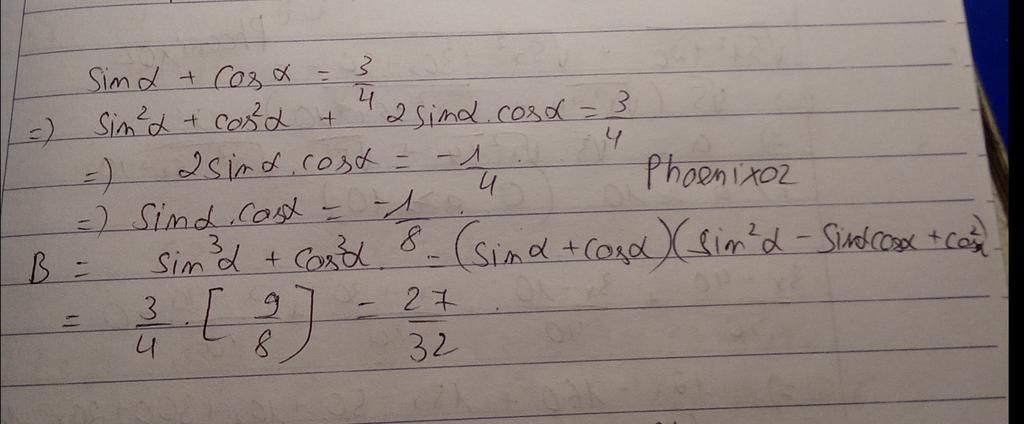 sinα + cosα = 3/4
=) sin²α + cos²α + 2sinα.cosα = 3/4
=) 2sinα.cosα = -1/4.
Phoenix02
=) sinα.cosα = -1/8.
B = sin³α + cos³α. = (sinα + cosα)(sin²α - sinαcosα + cos²α)
= 3/4 . [9/8] = 27/32.